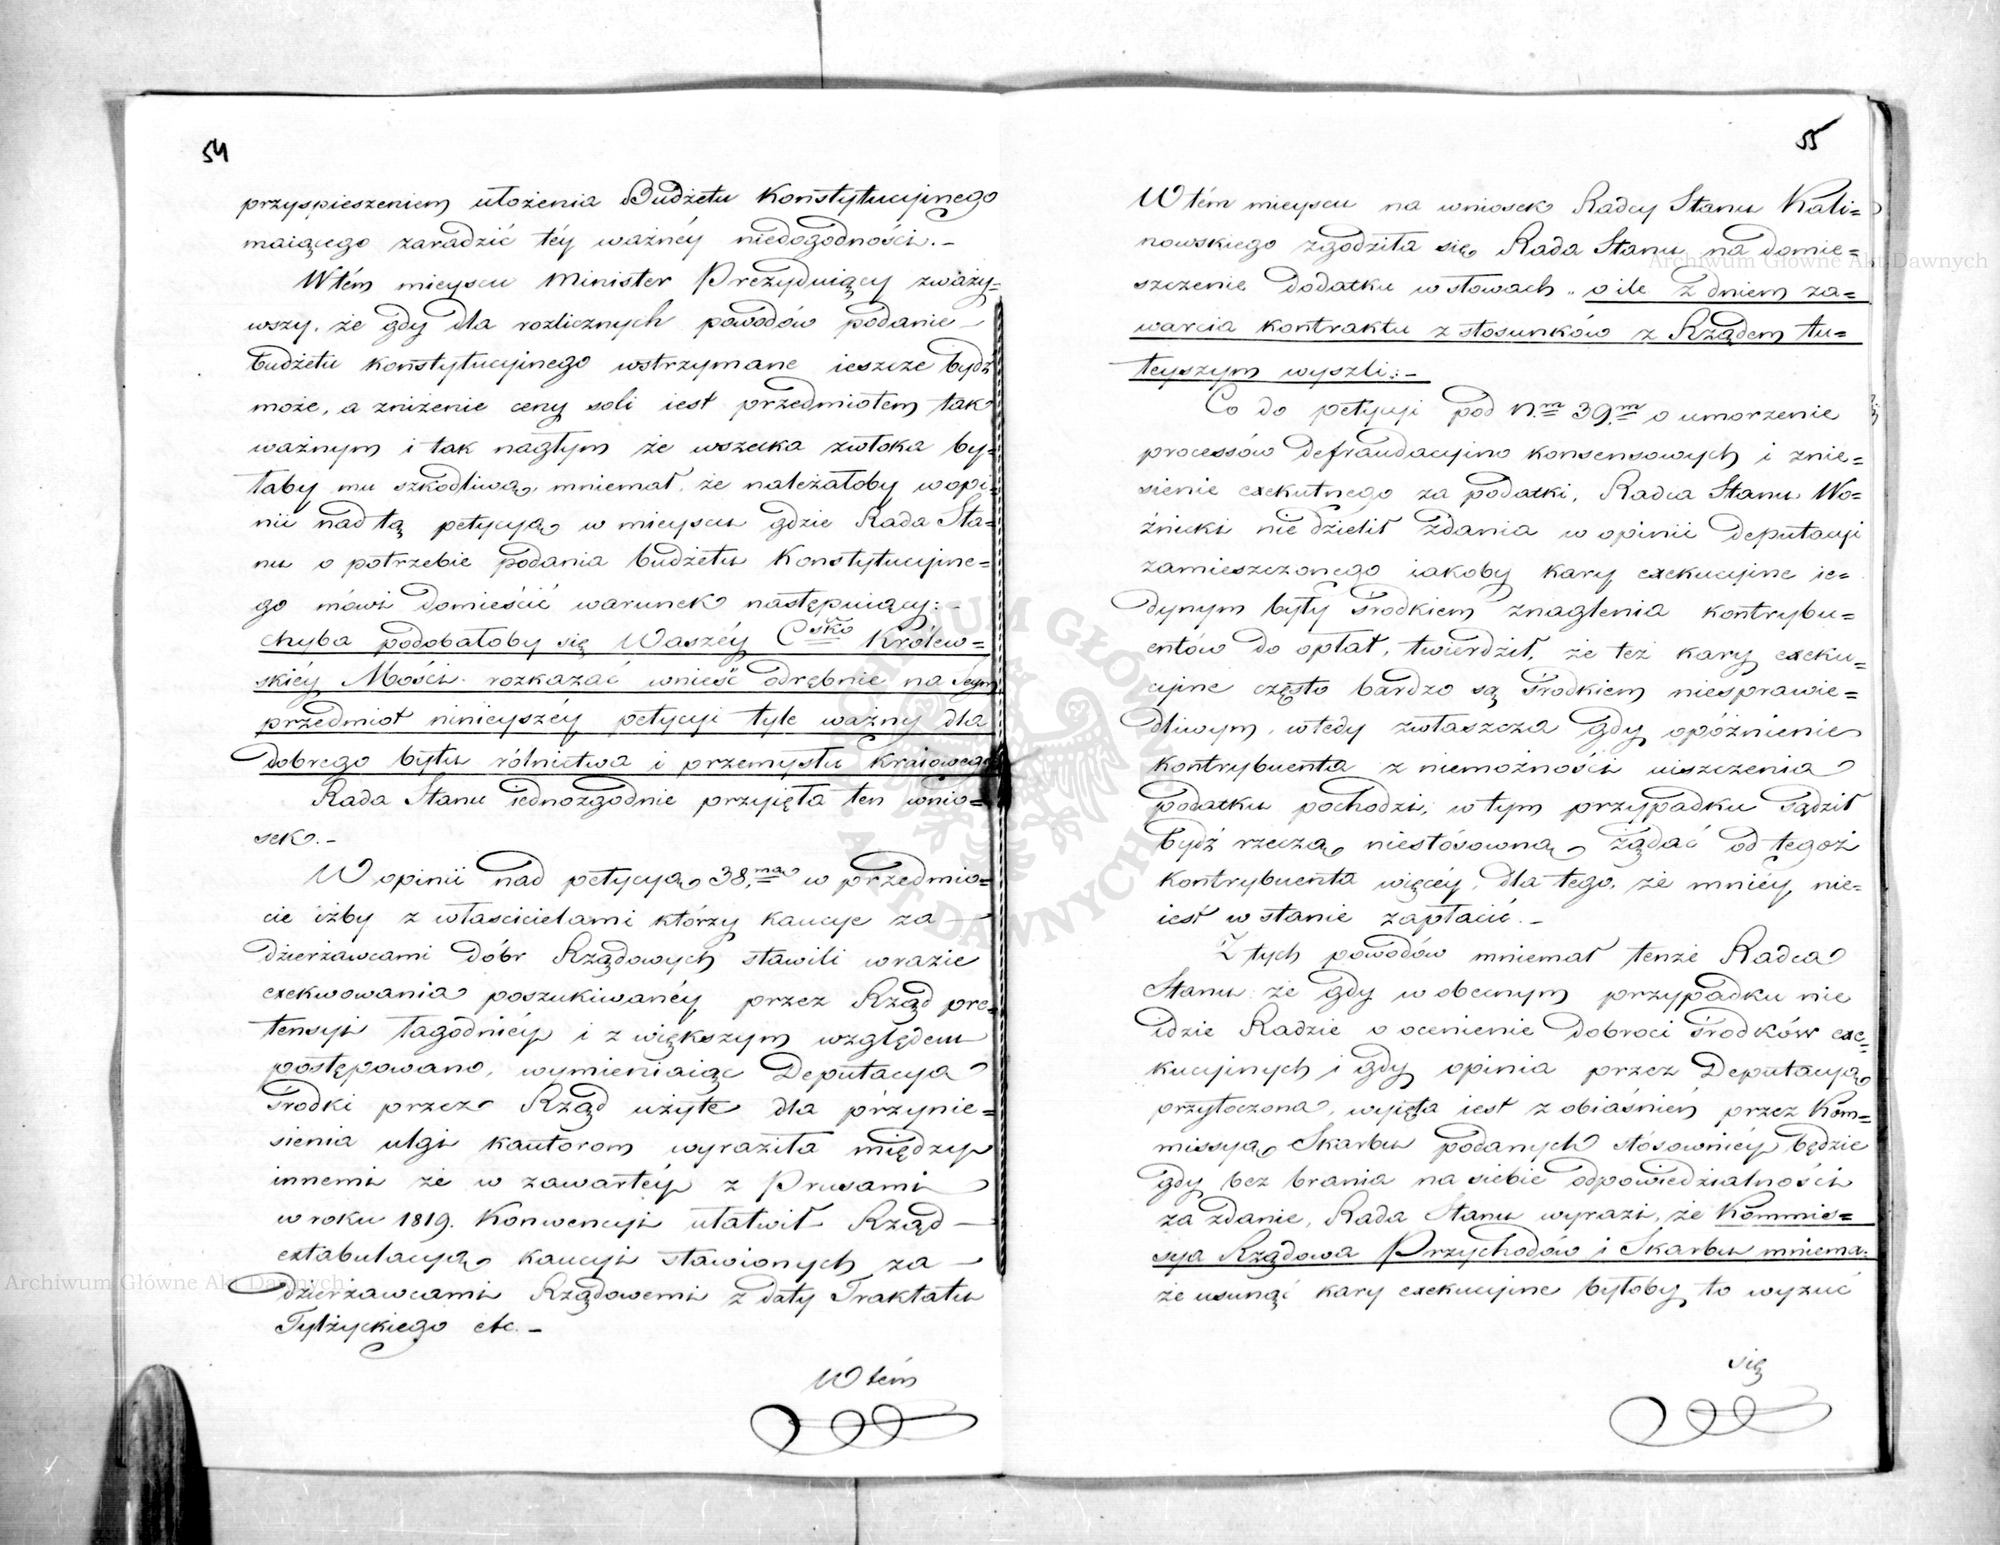 54
przyspieszeniem ułożenia Budżetu Konstytucyjnego
maiącego zaradzić téy ważnéy niedogodności.–
W tém mieyscu Minister Prezyduiący zważy=
wszy, że gdy dla rozlicznych powodów podanie
budżetu konstytucyjnego wstrzymane ieszcze bydź
może, a zniżenie ceny soli iest przedmiotem tak
ważnym i tak nagłym że wszelka zwłoka by=
łaby mu szkodliwą, mniemał, że należałoby w opi=
nii nad tą petycyą w mieyscu gdzie Rada Sta=
nu o potrzebie podania budżetu Konstytucyjne=
go mówi domieścić warunek następuiący:–
chyba podobałoby się Waszéy Cskó Królew=
skiéy Mości rozkazać wnieść odrębnie na Seym
przedmiot ninieyszéy petycyi tyle ważny dla
dobrego bytu rólnictwa i przemysłu kraiowego
Rada Stanu iednozgodnie przyięła ten wnio=
sek.–
W opinii nad petycyą 38.ma w przedmio=
cie iżby z właścicielami którzy kaucye za
dzierżawcami dóbr Rządowych stawili w razie
exekwowania poszukiwanéy przez Rząd pre=
tensyi łagodniéy i z większym względem
postępowano, wymieniaiąc Deputacya
środki przez Rząd użyte dla przynie=
sienia ulgi kautorom wyraziła między
innemi że w zawartéy z Prusami
w roku 1819. Konwencyi ułatwił Rząd
extabulacyą kaucyi stawionych za
dzierżawcami Rządowemi z daty Traktatu
Tylżyckiego etc.–
W tém
55
W tém mieyscu na wniosek Radcy Stanu Kali=
nowskiego zgodziła się Rada Stanu na domie=
szczenie dodatku w słowach „o ile z dniem za=
warcia kontraktu z stosunków z Rządem tu=
teyszym wyszli:–
Co do petycyi pod N.m 39.m o umorzenie
processów defraudacyino konsensowych i znie=
sienie exekutnego za podatki, Radca Stanu Wo=
źnicki nie dzielił zdania w opinii Deputacyi
zamieszczonego iakoby kary exekucyjne ie=
dynym były środkiem znaglenia kontrybu=
entów do opłat, twierdził, że też kary exeku=
cyjne często bardzo są środkiem niesprawie=
dliwym, wtedy zwłaszcza gdy opóźnienie
kontrybuenta z niemożności uiszczenia
podatku pochodzi; w tym przypadku sądził
bydź rzeczą niestósowną żądać od tegoż
kontrybuenta więcéy, dla tego, że mniéy nie=
iest w stanie zapłacić.–
Z tych powodów mniemał tenże Radca
Stanu że gdy w obecnym przypadku nie
idzie Radzie o ocenienie dobroci środków exe=
kucyjnych i gdy opinia przez Deputacyą
przytoczona, wyięta iest z obiaśnień przez Kom=
missyą Skarbu podanych stósowniéy będzie
gdy bez brania na siebie odpowiedzialności
za zdanie, Rada Stanu wyrazi, że Kommis=
sya Rządowa Przychodów i Skarbu mniema
że usunąć kary exekucyjne byłoby to wyzuć
się
Archiwum Główne Akt Dawnych
Archiwum Główne Akt Dawnych
ARCHIWUM GŁÓWNE AKT DAWNYCH